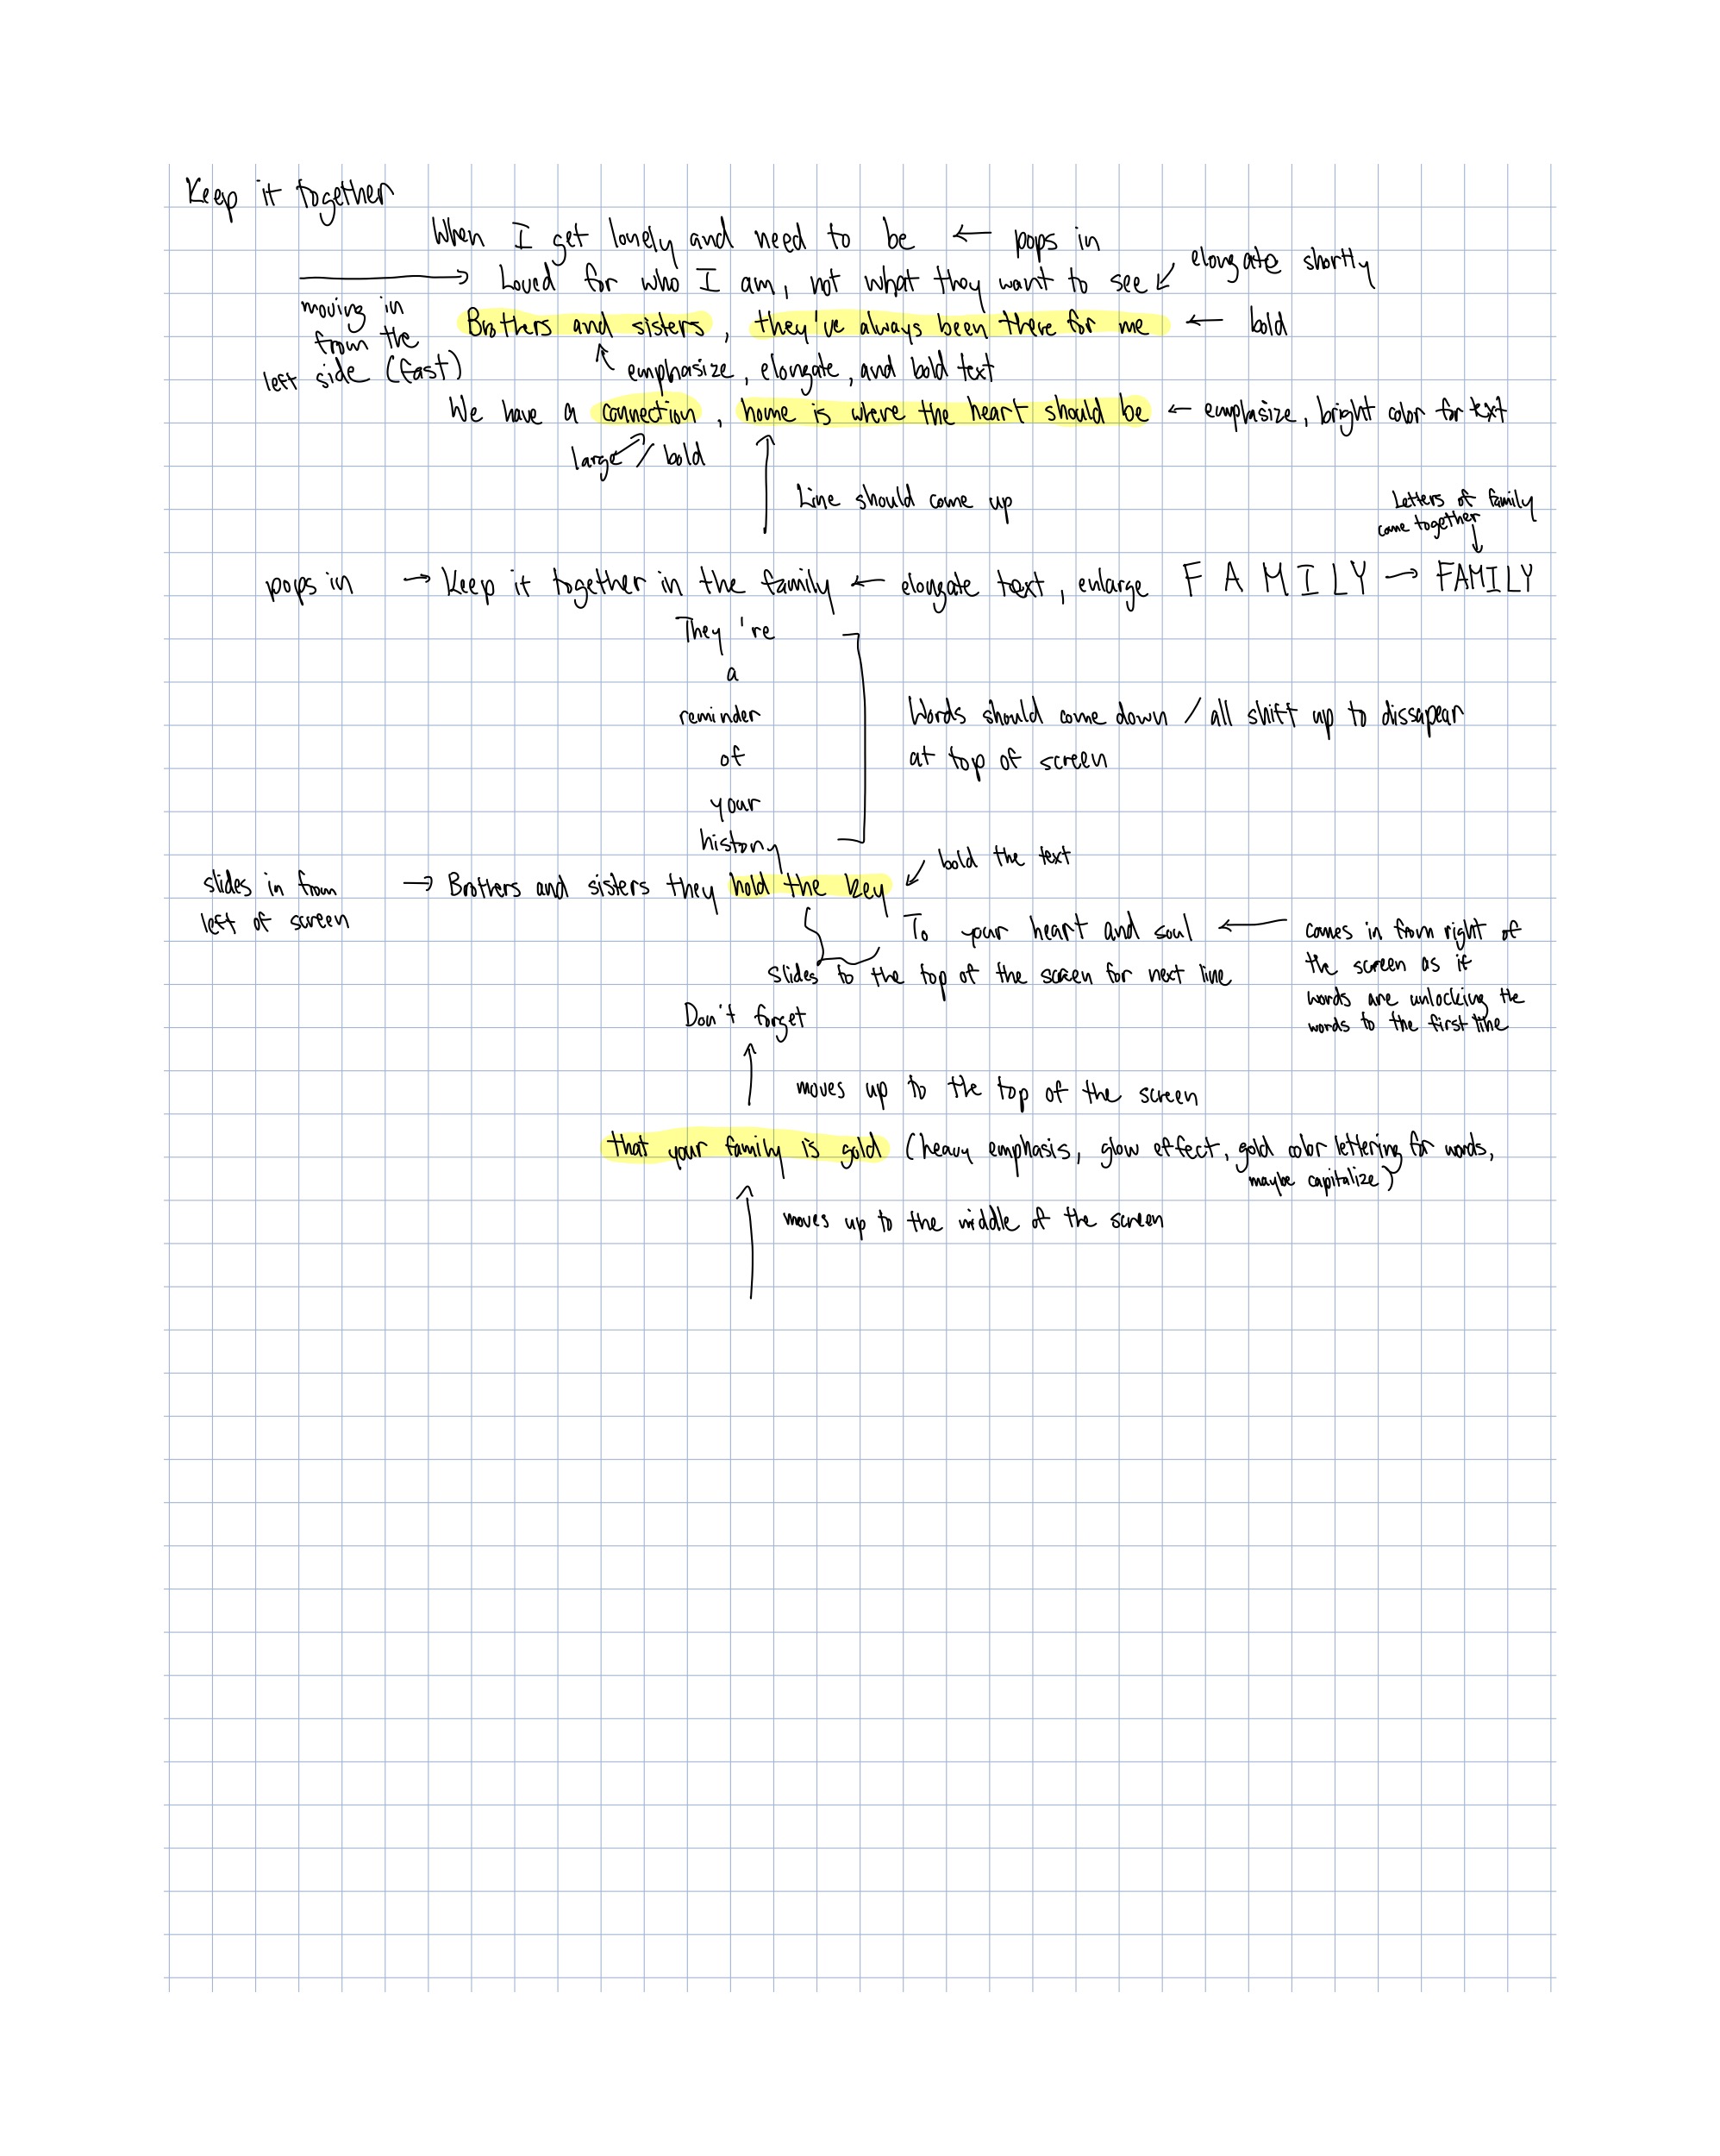 Keep it together
When I get lonely and need to be ← pops in
elongate shortly
→ Loved for who I am, not what they want to see ↙
moving in
from the
left side (fast)
Brothers and sisters, they've always been there for me ← bold
↖ emphasize, elongate, and bold text
We have a connection, home is where the heart should be ← emphasize, bright color for text
large / bold
↑ Line should come up
Letters of family
come together
pops in → Keep it together in the family ← elongate text, enlarge F A M I L Y → FAMILY
They're
a
reminder
of
your
history
Words should come down / all shift up to dissapear
at top of screen
bold the text
slides in from
left of screen
→ Brothers and sisters they hold the key ↙
To your heart and soul ←
comes in from right of
the screen as if
words are unlocking the
words to the first line
slides to the top of the screen for next line
Don't forget
↑ moves up to the top of the screen
that your family is gold (heavy emphasis, glow effect, gold color lettering for words,
maybe capitalize)
↑ moves up to the middle of the screen